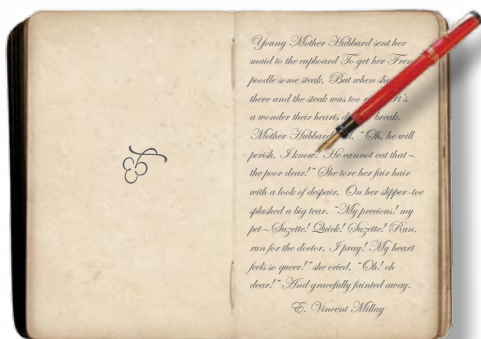 &
Young Mother Hubbard sent her
maid to the cupboard To get her
poodle some steak. But when
there and the steak was too
a wonder their hearts break.
Mother Hubbard "Oh, he will
perish. I know! He cannot eat that~
the poor dear!" She tore her fair hair
with a look of despair. On her slipper-toe
splashed a big tear. "My precious! my
pet~Suzette! Quick! Suzette! Run,
run for the doctor, I pray! My heart
feels so queer!" she cried, "Oh! oh
dear!" And gracefully fainted away.
E. Vincent Millay